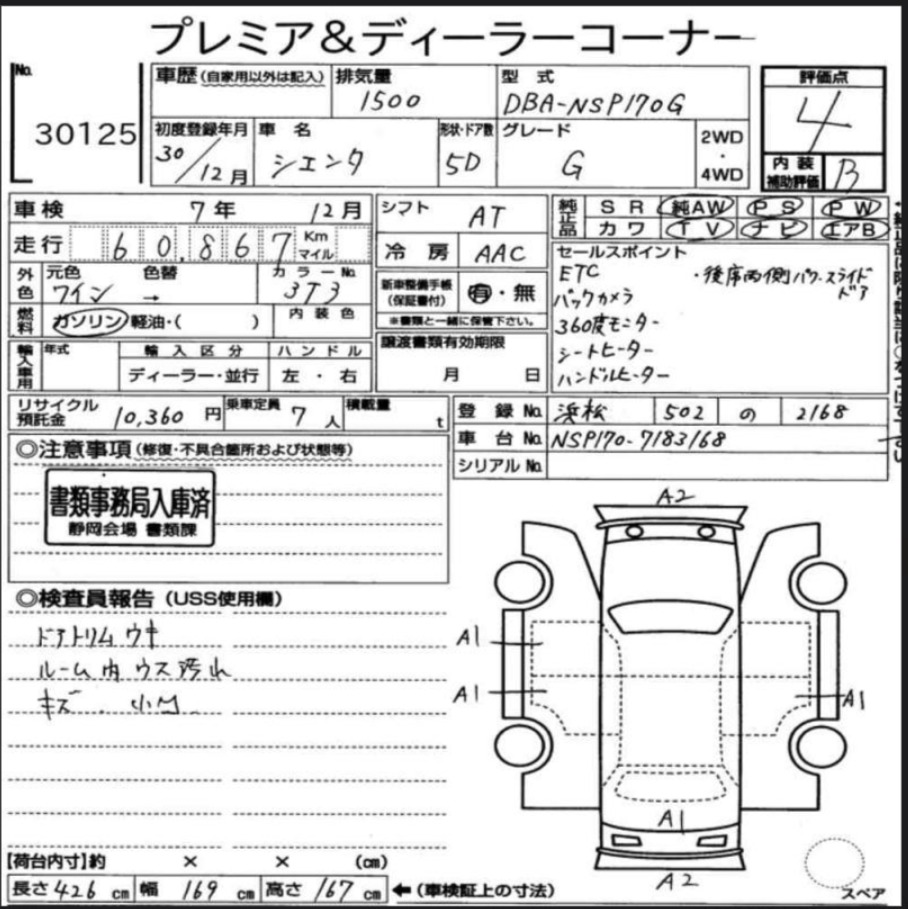 プレミア&ディーラーコーナー
No.
30125
車歴(自家用以外は記入)
排気量
1500
型式
DBA-NSP170G
評価点
4
初度登録年月
30/12月
車名
シエンタ
形状・ドア数
5D
グレード
G
2WD
・
4WD
内装
補助評価
B
車検 7年 12月
走行 60,867 Km マイル
シフト AT
冷房 AAC
純正品 SR 純AW PS PW
カワ TV ナビ エアB
外色 元色 色替 カラーNo.
ワイン → 3T3
新車整備手帳
(保証書付)
有・無
※書類と一緒に保管下さい。
セールスポイント
ETC ・後席両側パワースライドドア
バックカメラ
360度モニター
シートヒーター
ハンドルヒーター
燃料 ガソリン 軽油・( )
内装色
譲渡書類有効期限
月 日
輸入車用 年式 輸入区分 ハンドル
ディーラー・並行 左・右
リサイクル
預託金 10,360円
乗車定員 7人
積載量 t
登録No. 浜松 502 の 2168
車台No. NSP170-7183168
シリアルNo.
◎注意事項(修復・不具合箇所および状態等)
書類事務局入庫済
静岡会場 書類課
◎検査員報告(USS使用欄)
ドアトリムウキ
ルーム内ウス汚れ
キズ、小凹
A2
A1
A1
A1
A1
A2
スペア
【荷台内寸】約 × × (cm)
長さ426cm 幅169cm 高さ167cm ←(車検証上の寸法)